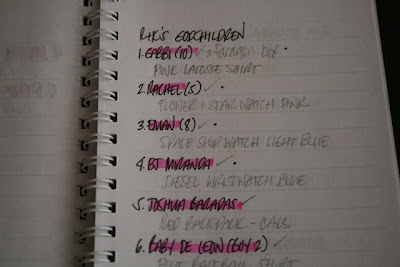 RHK'S GODCHILDREN
1. GABBI (10) ✓ → Paragon box •
PINK LACOSTE SHIRT
2. RACHEL (5) ✓ •
FLOWER + STAR WATCH PINK
3. EMAN (8) ✓ •
SPACE SHIP WATCH LIGHT BLUE
4. BJ MIRANDA ✓ •
DIESEL WRISTWATCH BLUE
5. JOSHUA BARADAS ✓
RED BACKPACK - CARS
6. BABY DE LEON (BOY 2) ✓
BLUE BASEBALL SHIRT